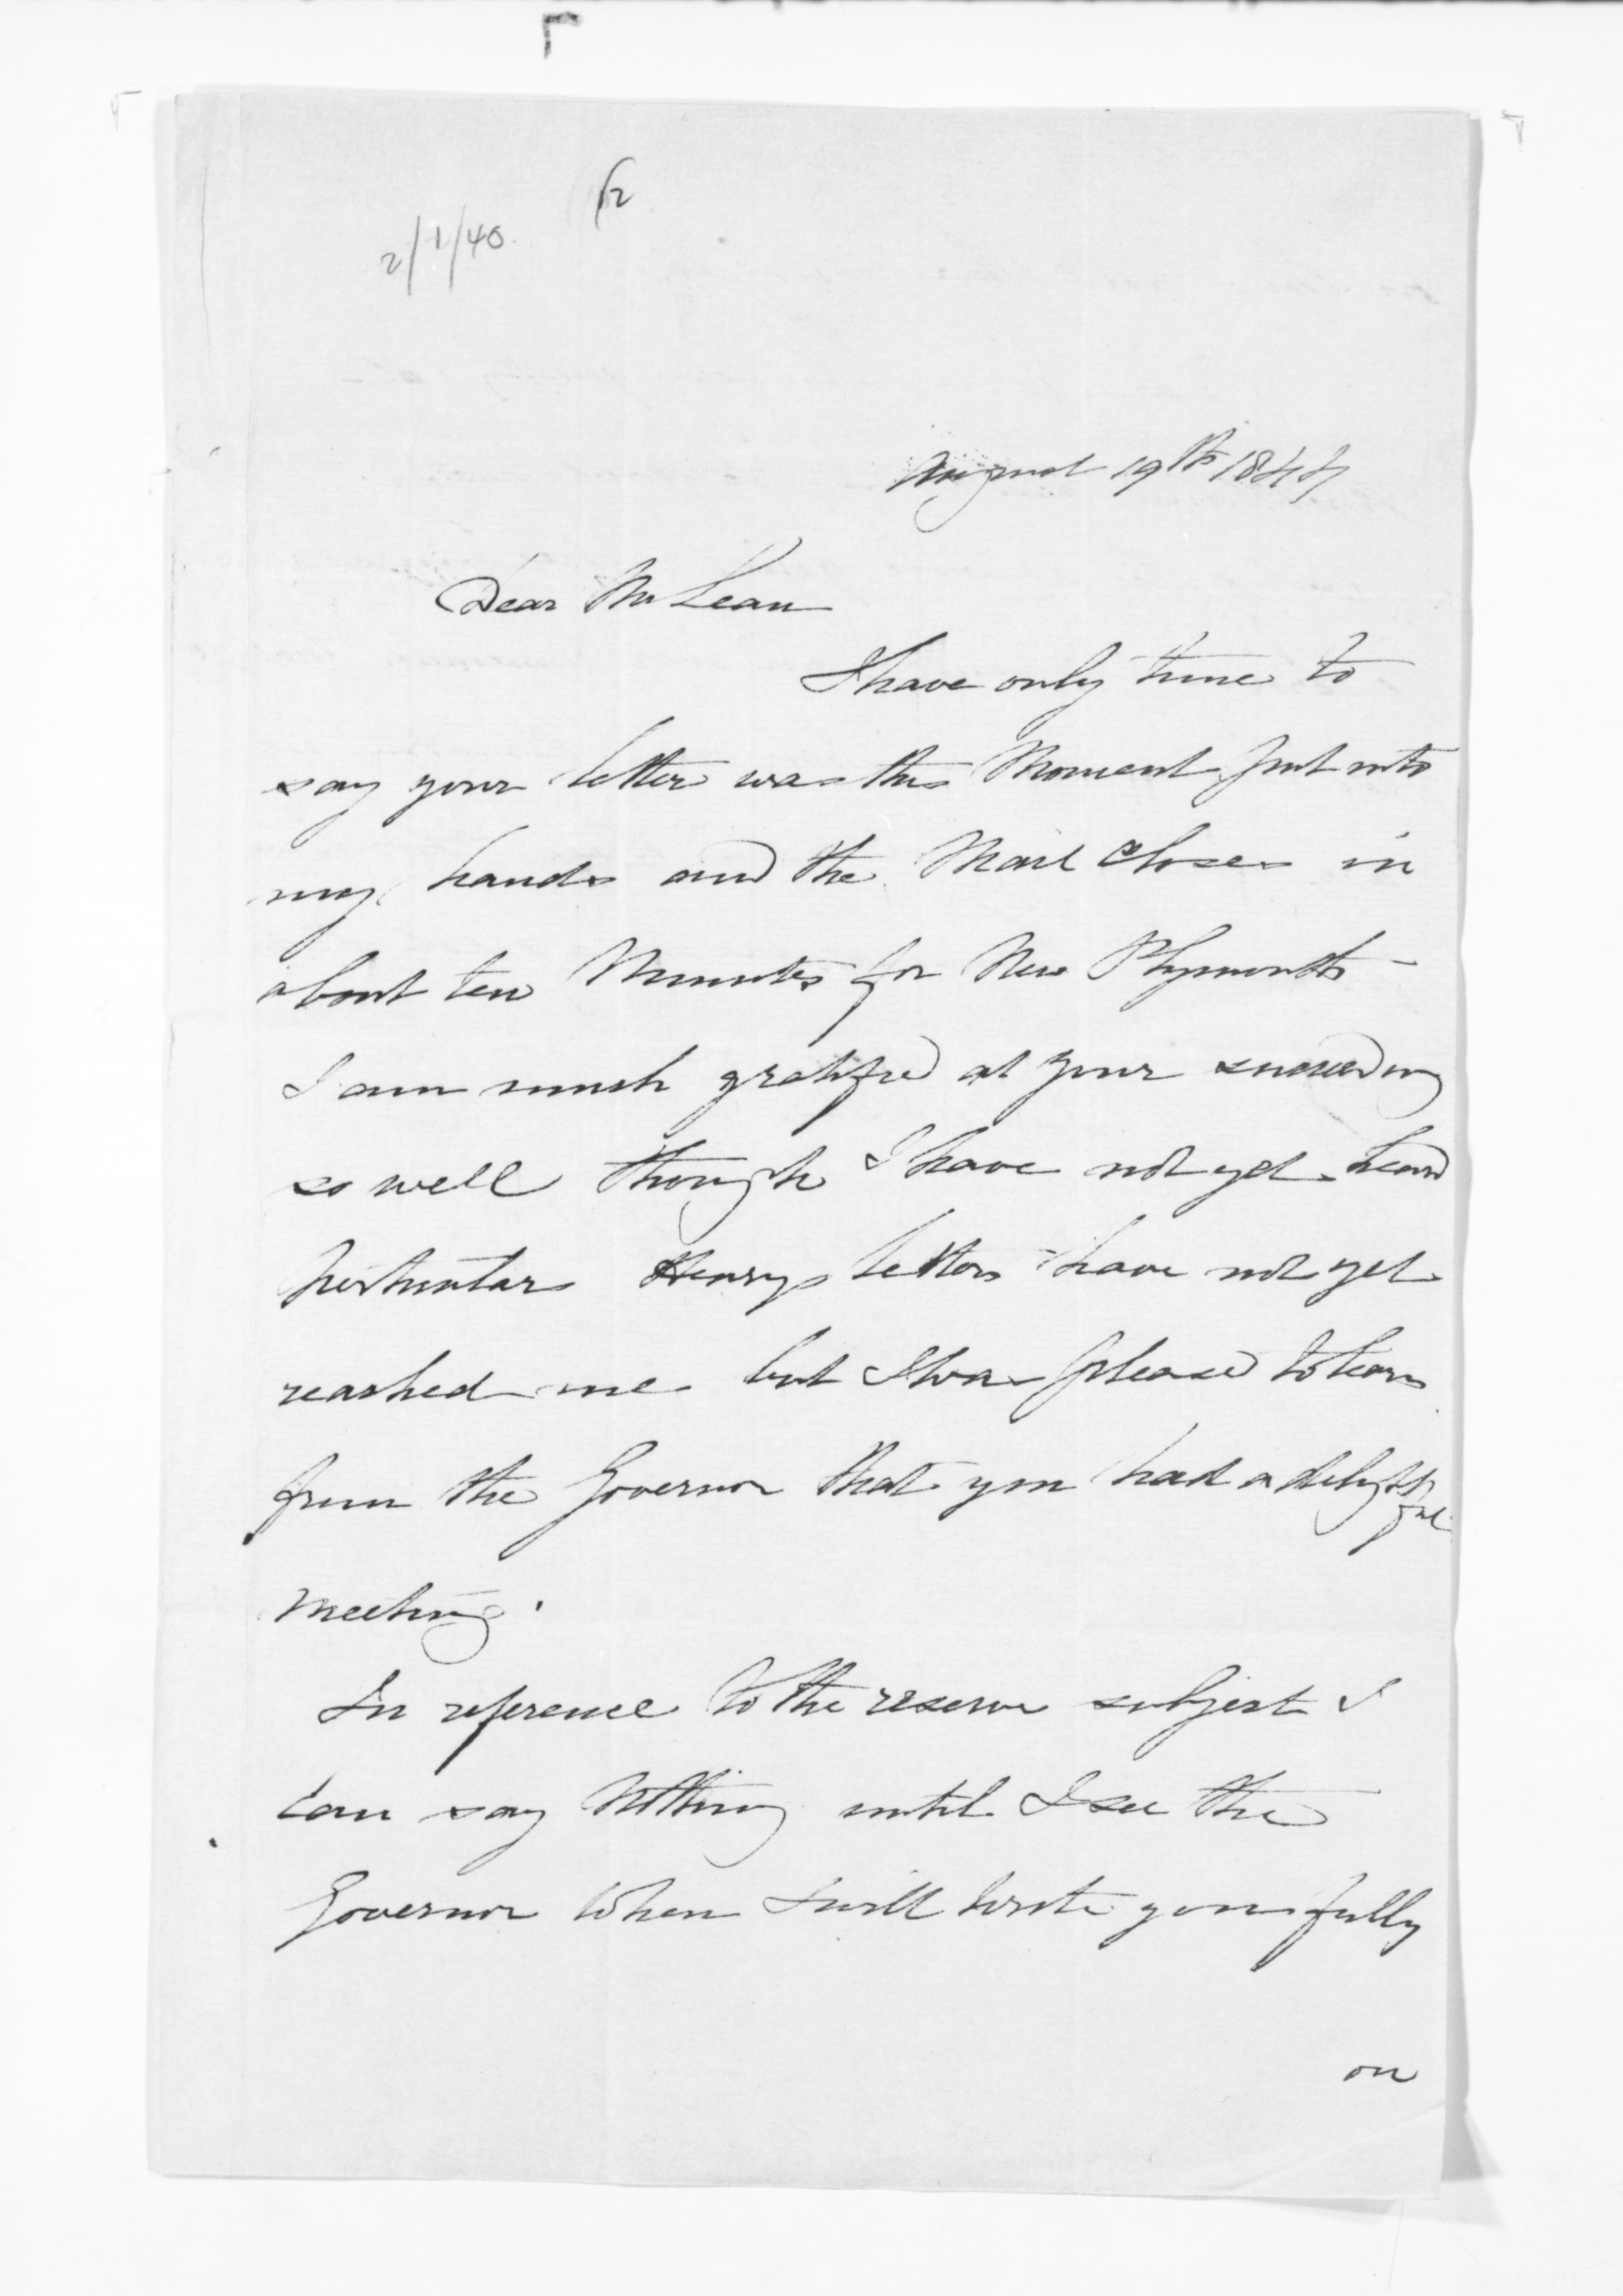 2/1/40.
August 19th 1844
Dear McLean
I have only time to
say your letter was this Moment put into
my hands and the Mail Closes in
about ten Minutes for New Plymouth -
I am much gratified at your succeeding
so well though I have not yet heard
perticulars Henrys letters have not yet
reached me but I was pleased to learn
from the Governor that you had a delightful
meeting.
In reference to the reserve subject I
can say Nothing until I see the
Governor when I will write you fully
on